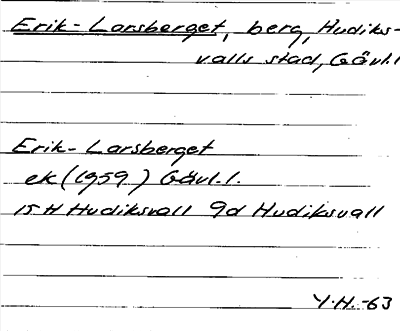 Erik-Larsberget, berg, Hudiks-
valls stad, Gävl.l
Erik-Larsberget
ek (1959) Gävl.l.
15H Hudiksvall 9d Hudiksvall
Y.H.-63